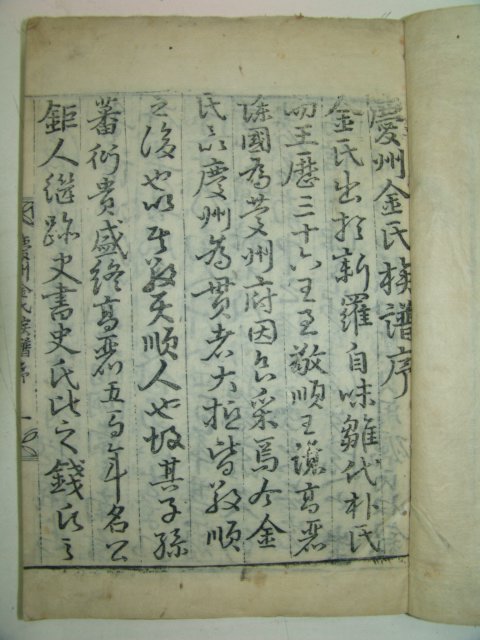 慶州金氏族譜序
金氏出於新羅自味雛代朴氏
而王歷三十六王至敬順王讓高麗
除國爲慶州府因食采焉今金
氏以慶州爲貫者大抵皆敬順
之後也以其敬天順人也故其子孫
蕃衍貴盛終高麗五百年名公
鉅人繼跡史書史氏比之錢氏之
慶州金氏族譜序 一